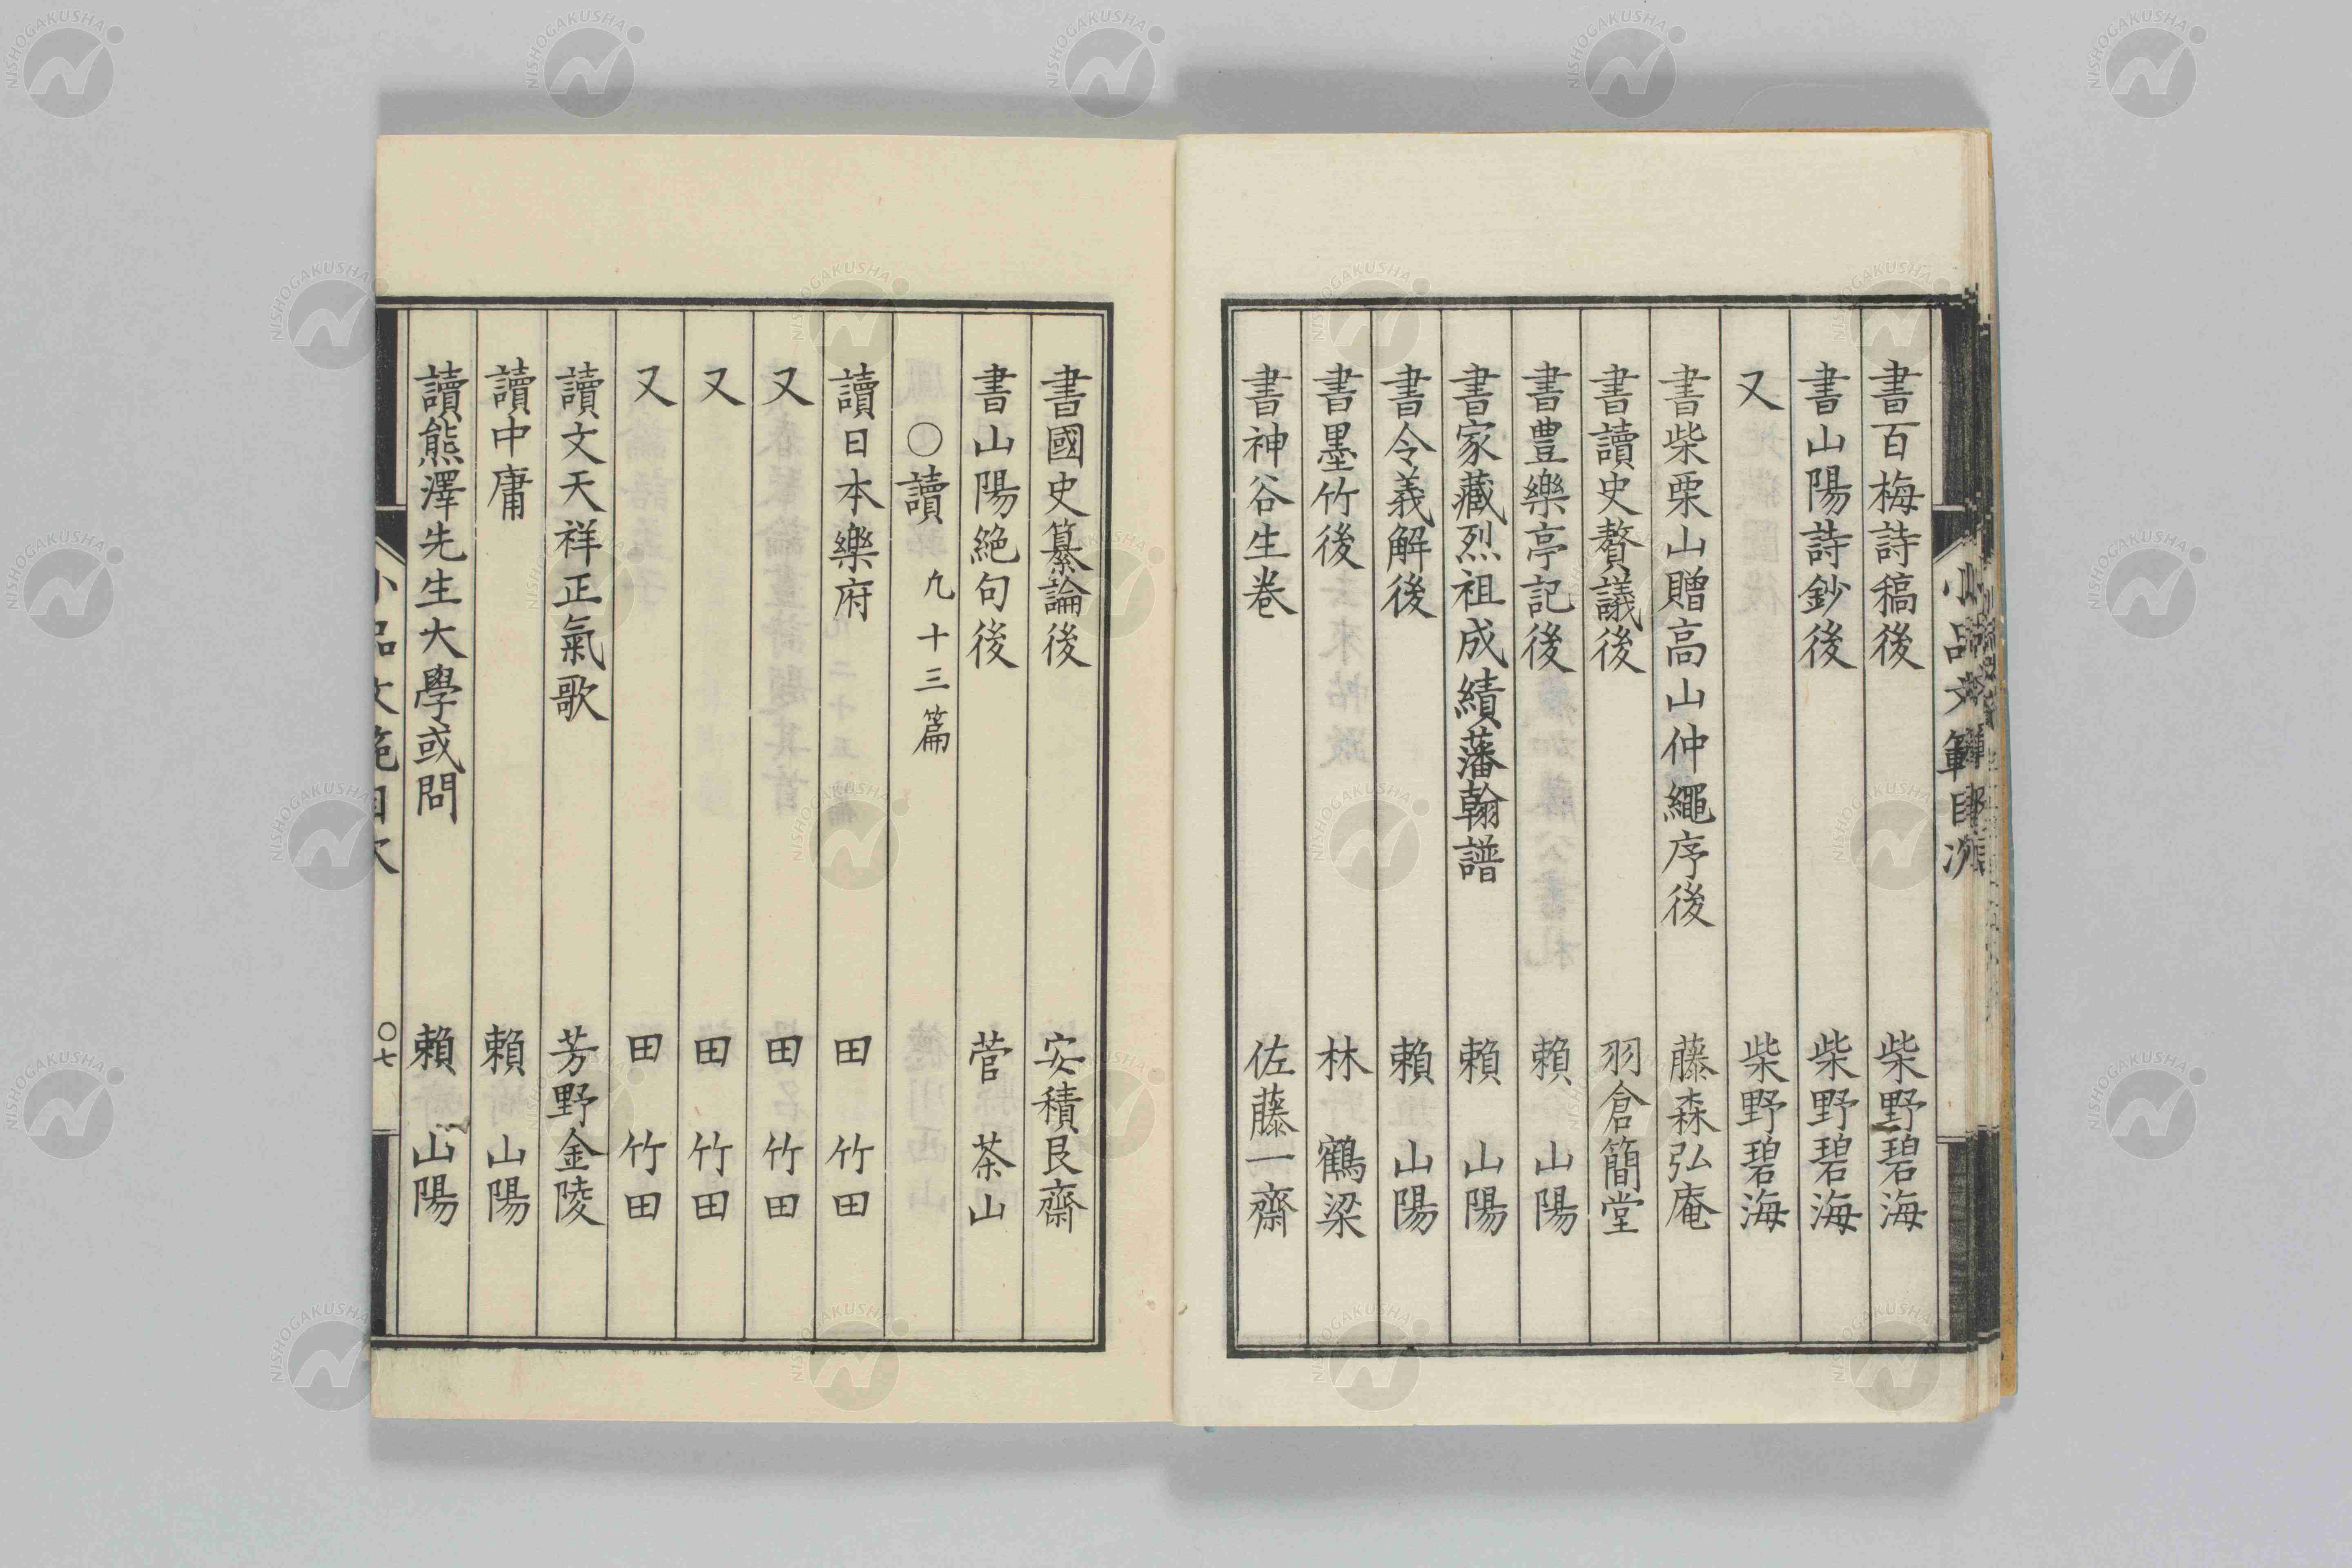 書百梅詩稿後 柴野碧海
書山陽詩鈔後 柴野碧海
又 柴野碧海
書柴栗山贈高山仲繩序後 藤森弘庵
書讀史贅議後 羽倉簡堂
書豊樂亭記後 賴山陽
書家藏烈祖成績藩翰譜 賴山陽
書令義解後 賴山陽
書墨竹後 林鶴梁
書神谷生卷 佐藤一齋
書國史纂論後 安積艮齋
書山陽絕句後 菅茶山
○讀 凡十三篇
讀日本樂府 田竹田
又 田竹田
又 田竹田
又 田竹田
讀文天祥正氣歌 芳野金陵
讀中庸 賴山陽
讀熊澤先生大學或問 賴山陽
小品文範目次 ○七
NISHOGAKUSHA